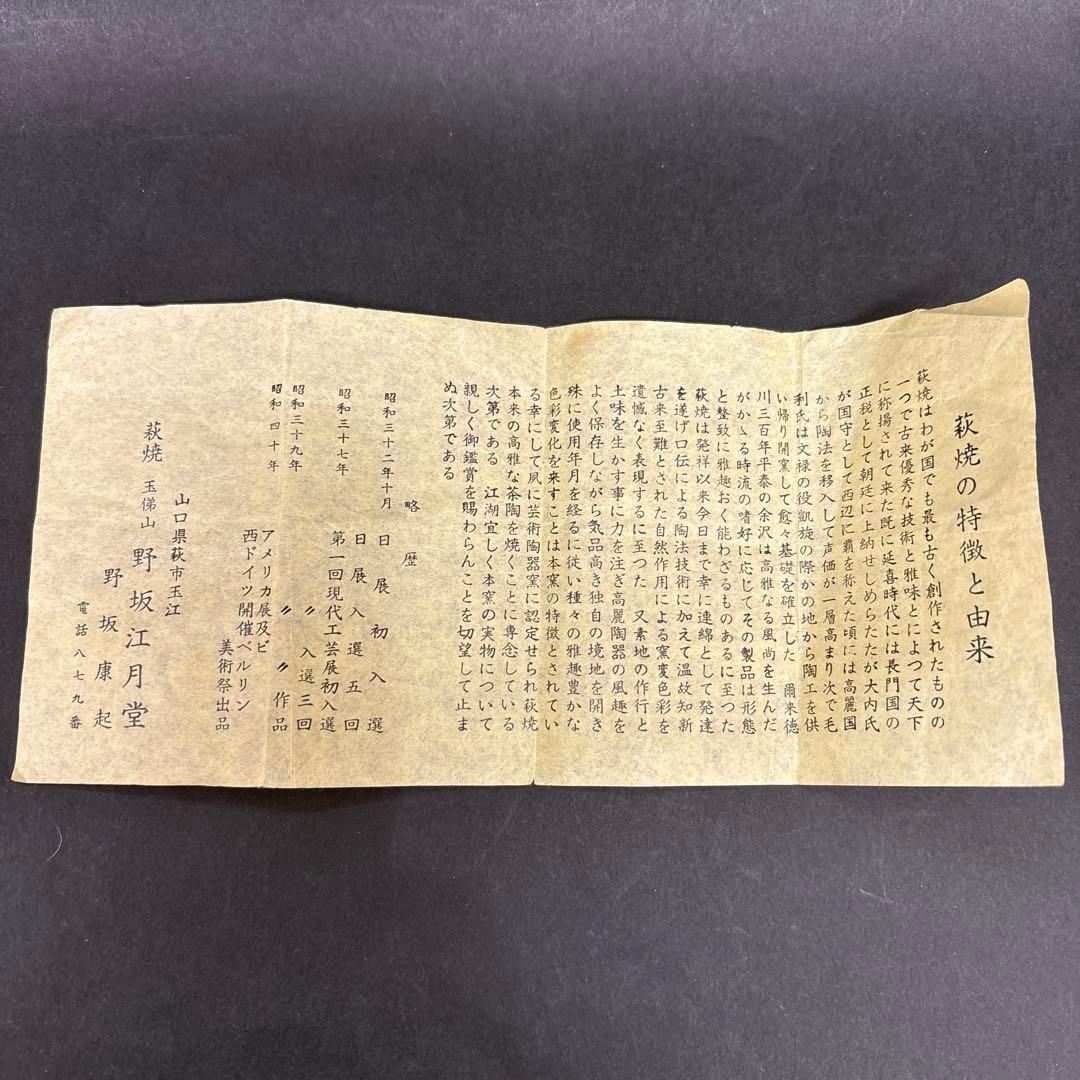 萩焼の特徴と由来
萩焼はわが国でも最も古く創作されたものの
一つで古来優秀な技術と雅味とによつて天下
に称揚されて来た既に延喜時代には長門国の
正税として朝廷に上納せしめらたたが大内氏
が国守として西辺に覇を称えた頃には高麗国
から陶法を移入して声価が一層高まり次で毛
利氏は文禄の役凱旋の際かの地から陶工を供
い帰り開窯して愈々基礎を確立した　爾来徳
川三百年平泰の余沢は高雅なる風尚を生んだ
がかゝる時流の嗜好に応じてその製品は形態
と整致に雅趣おく能わざるものあるに至つた
萩焼は発祥以来今日まで幸に連綿として発達
を遂げ口伝による陶法技術に加えて温故知新
古来至難とされた自然作用による窯変色彩を
遺憾なく表現するに至つた　又素地の作行と
土味を生かす事に力を注ぎ高麗陶器の風趣を
よく保存しながら気品高き独自の境地を開き
殊に使用年月を経るに従い種々の雅趣豊かな
色彩変化を来すことは本窯の特徴とされてい
る幸にして夙に芸術陶器窯に認定せられ萩焼
本来の高雅な茶陶を焼くことに専念している
次第である　江湖宜しく本窯の実物について
親しく御鑑賞を賜わらんことを切望して止ま
ぬ次第である
略歴
昭和三十二年十月　日展初入選
日展入選五回
昭和三十七年　第一回現代工芸展初入選
〃　入選三回
昭和三十九年　〃　〃　作品
昭和四十年　アメリカ展及ビ
西ドイツ開催ベルリン
美術祭出品
山口県萩市玉江
萩焼　玉僊山　野坂江月堂
野坂康起
電話八七九番